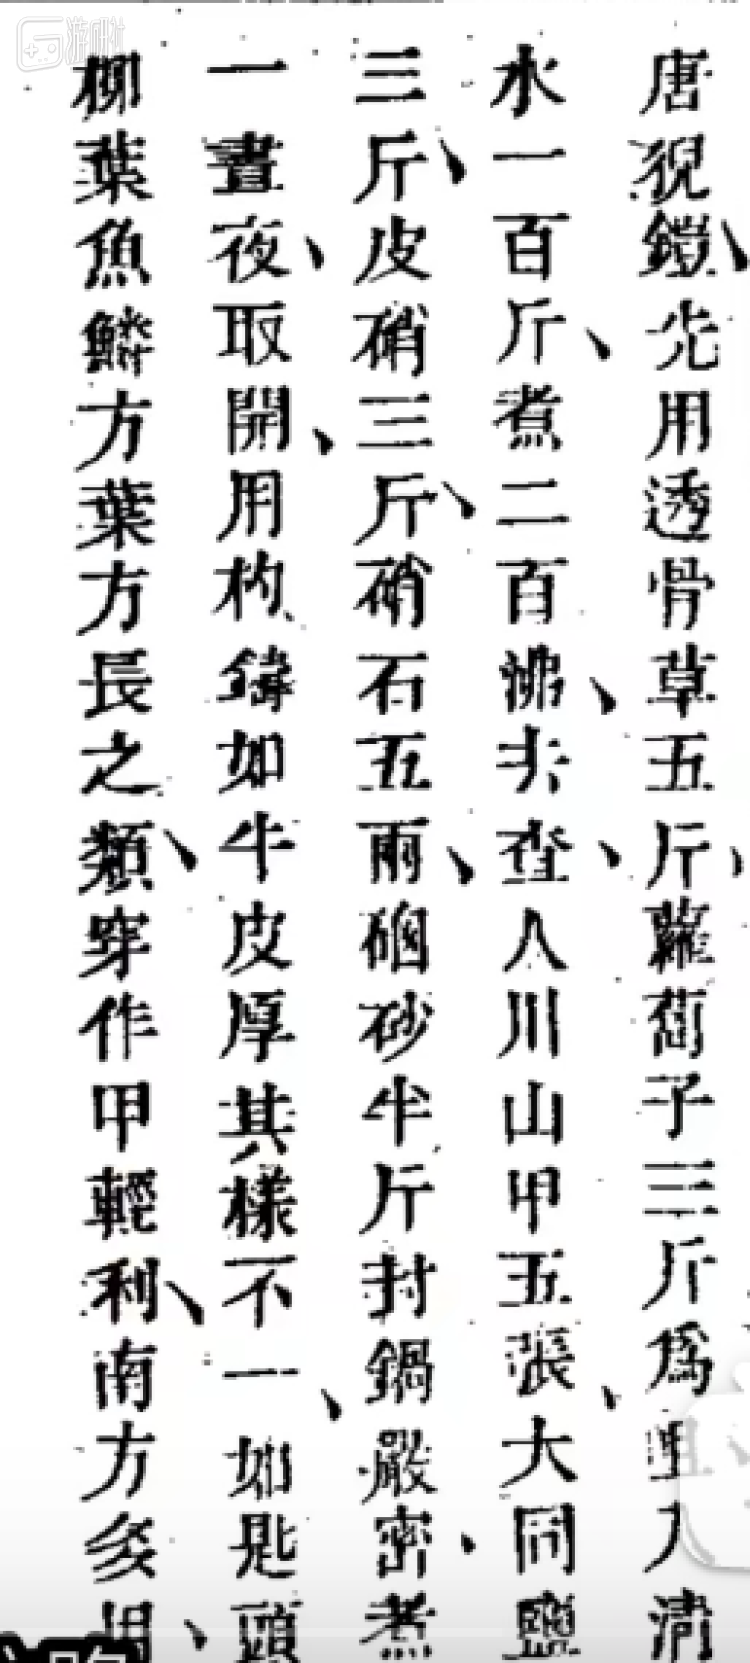 唐猊鎧、先用透骨草五斤、蘿蔔子三斤爲人清
水一百斤、煮二百沸、去查、入川山甲五張、大同鹽
三斤、皮硝三斤、硝石五兩、硇砂半斤封鍋嚴密、煮
一晝夜、取開、用杓鑄如牛皮厚其樣不一、如匙頭
柳葉魚鱗方葉方長之類、穿作甲輕利、南方多用、
游研社